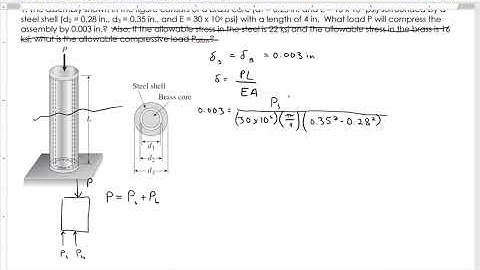 shown in the figure consists of a brass core
steel shell (d₂ = 0.28 in., d₃ = 0.35 in., and E = 30 x 10⁶ psi) with a length of 4 in. What load P will compress the
assembly by 0.003 in.? Also, if the allowable stress in the steel is 22 ksi and the allowable stress in the brass is 16
ksi, what is the allowable compressive load
P
Steel shell
Brass core
L
d₁
d₂
d₃
δₛ = δ_B = 0.003 in
δ = PL / EA
0.003 = Pₛ / (30×10⁶)(π/4)(0.35² - 0.28²)
P
P = Pₛ + P_b
Pₛ P_b